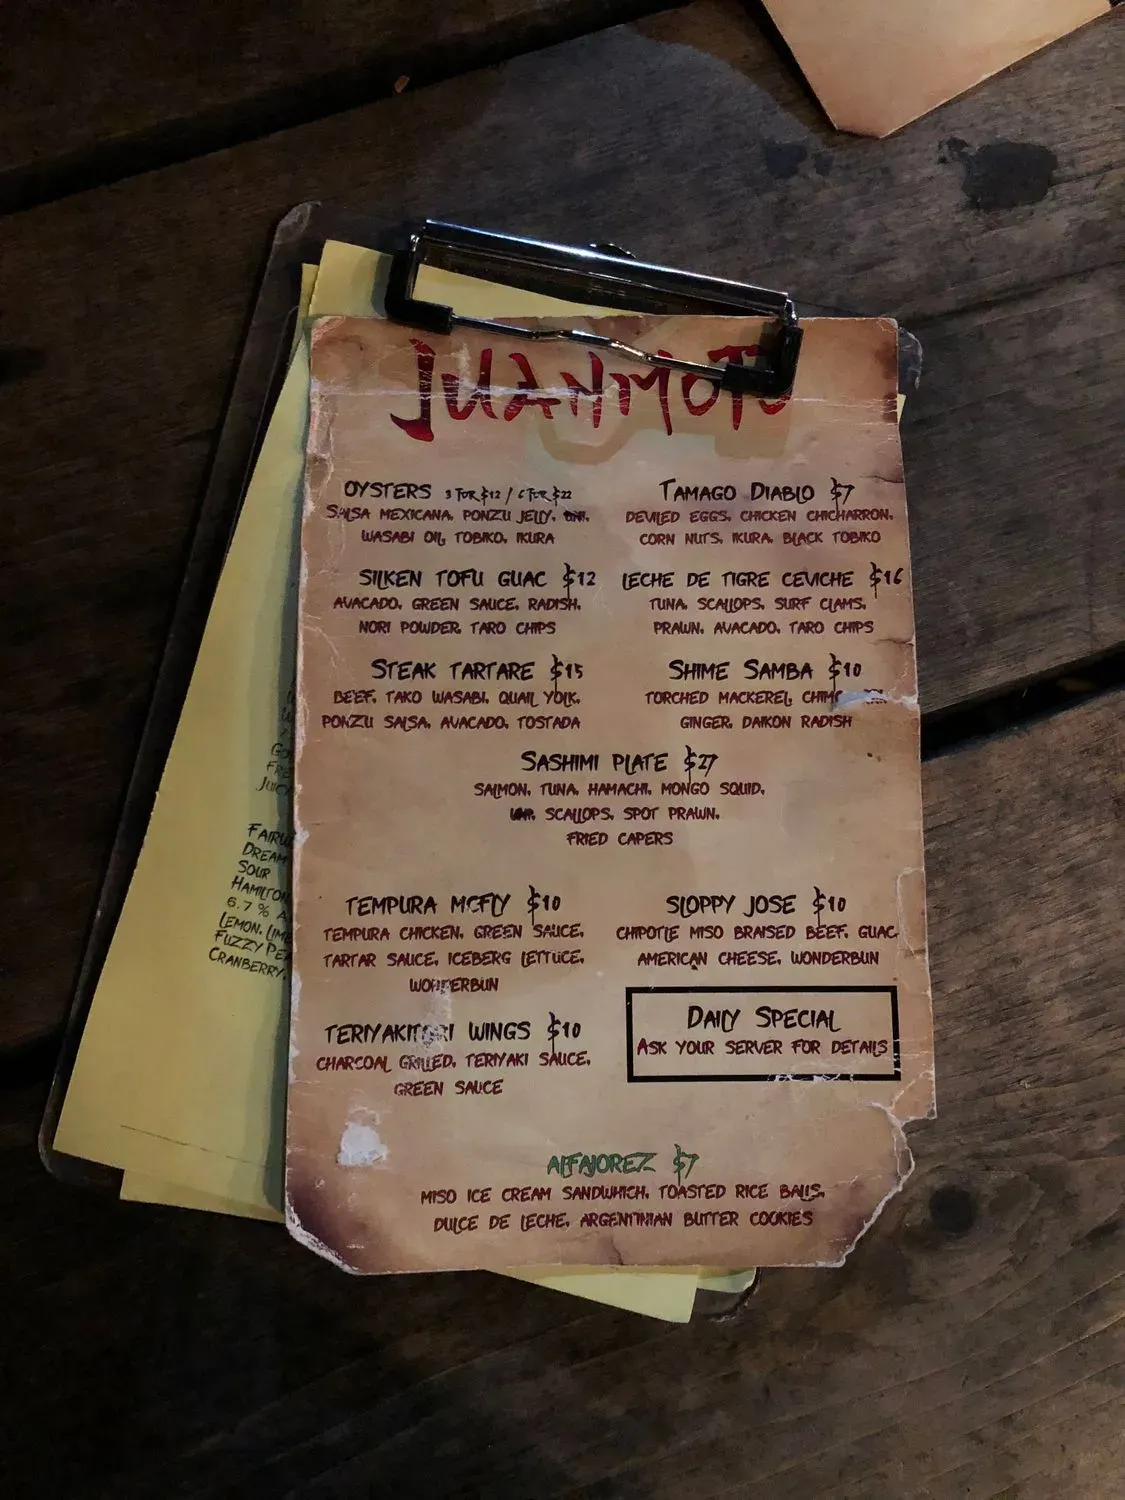 JUANMOTO
OYSTERS 3 FOR $12 / 6 FOR $22
SALSA MEXICANA, PONZU JELLY,
WASABI OIL, TOBIKO, IKURA
TAMAGO DIABLO $7
DEVILED EGGS, CHICKEN CHICHARRON,
CORN NUTS, IKURA, BLACK TOBIKO
SILKEN TOFU GUAC $12
AVACADO, GREEN SAUCE, RADISH,
NORI POWDER, TARO CHIPS
LECHE DE TIGRE CEVICHE $16
TUNA, SCALLOPS, SURF CLAMS,
PRAWN, AVACADO, TARO CHIPS
STEAK TARTARE $15
BEEF, TAKO WASABI, QUAIL YOLK,
PONZU SALSA, AVACADO, TOSTADA
SHIME SAMBA $10
TORCHED MACKEREL,
GINGER, DAIKON RADISH
SASHIMI PLATE $27
SALMON, TUNA, HAMACHI, MONGO SQUID,
SCALLOPS, SPOT PRAWN,
FRIED CAPERS
TEMPURA MCFLY $10
TEMPURA CHICKEN, GREEN SAUCE,
TARTAR SAUCE, ICEBERG LETTUCE,
WONDERBUN
SLOPPY JOSE $10
CHIPOTLE MISO BRAISED BEEF, GUAC
AMERICAN CHEESE, WONDERBUN
TERIYAKITORI WINGS $10
CHARCOAL GRILLED, TERIYAKI SAUCE,
GREEN SAUCE
DAILY SPECIAL
ASK YOUR SERVER FOR DETAILS
ALFAJOREZ $7
MISO ICE CREAM SANDWHICH, TOASTED RICE BALLS,
DULCE DE LECHE, ARGENTINIAN BUTTER COOKIES
DREAM
SOUR
HAMILTON
6.7 %
LEMON, LIME
FUZZY
CRANBERRY,